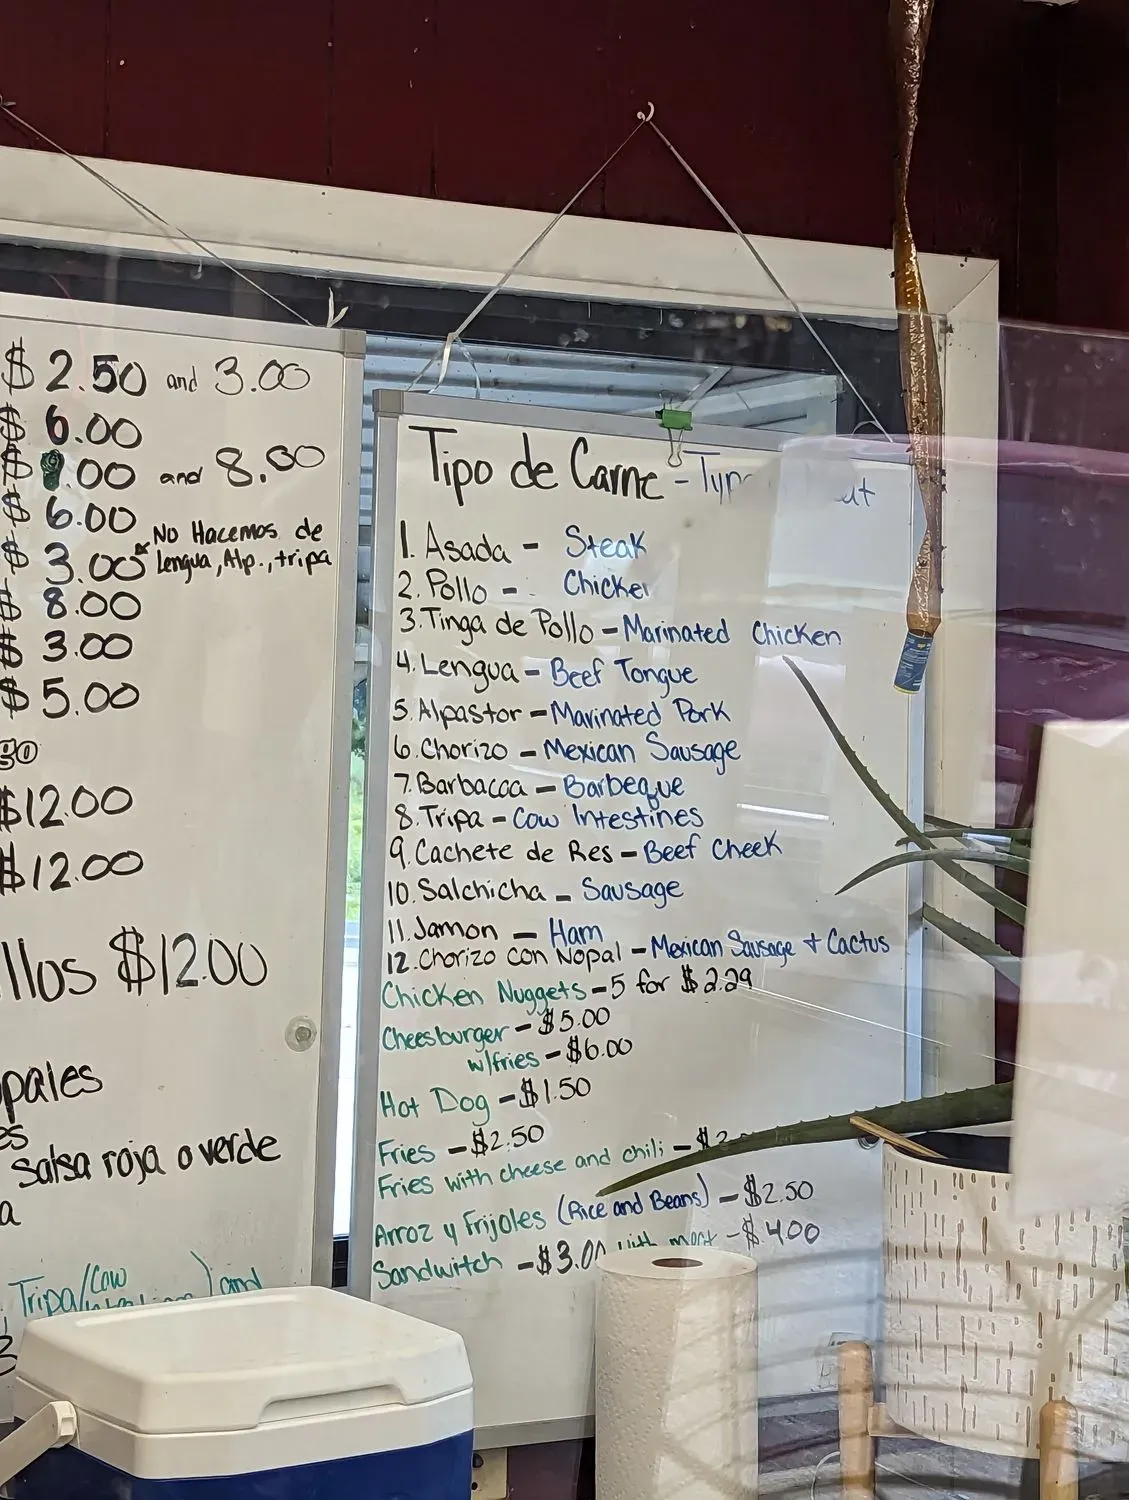 $ 2.50 and 3.00
$ 6.00
.00 and 8.00
$ 6.00
$ 3.00 * No Hacemos de
Lengua, Alp., tripa
$ 8.00
$ 3.00
$ 5.00
go
$12.00
$12.00
llos $12.00
pales
es
salsa roja o verde
a
Tripa/Cow
) and
Tipo de Carne -
1. Asada - Steak
2. Pollo - Chicken
3. Tinga de Pollo - Marinated Chicken
4. Lengua - Beef Tongue
5. Alpastor - Marinated Pork
6. Chorizo - Mexican Sausage
7. Barbacoa - Barbeque
8. Tripa - Cow Intestines
9. Cachete de Res - Beef Cheek
10. Salchicha - Sausage
11. Jamon - Ham
12. Chorizo con Nopal - Mexican Sausage + Cactus
Chicken Nuggets - 5 for $2.29
Cheesburger - $5.00
w/fries - $6.00
Hot Dog - $1.50
Fries - $2.50
Fries with cheese and chili - $
Arroz y Frijoles (Rice and Beans) - $2.50
Sandwitch - $3.00 with - $4.00